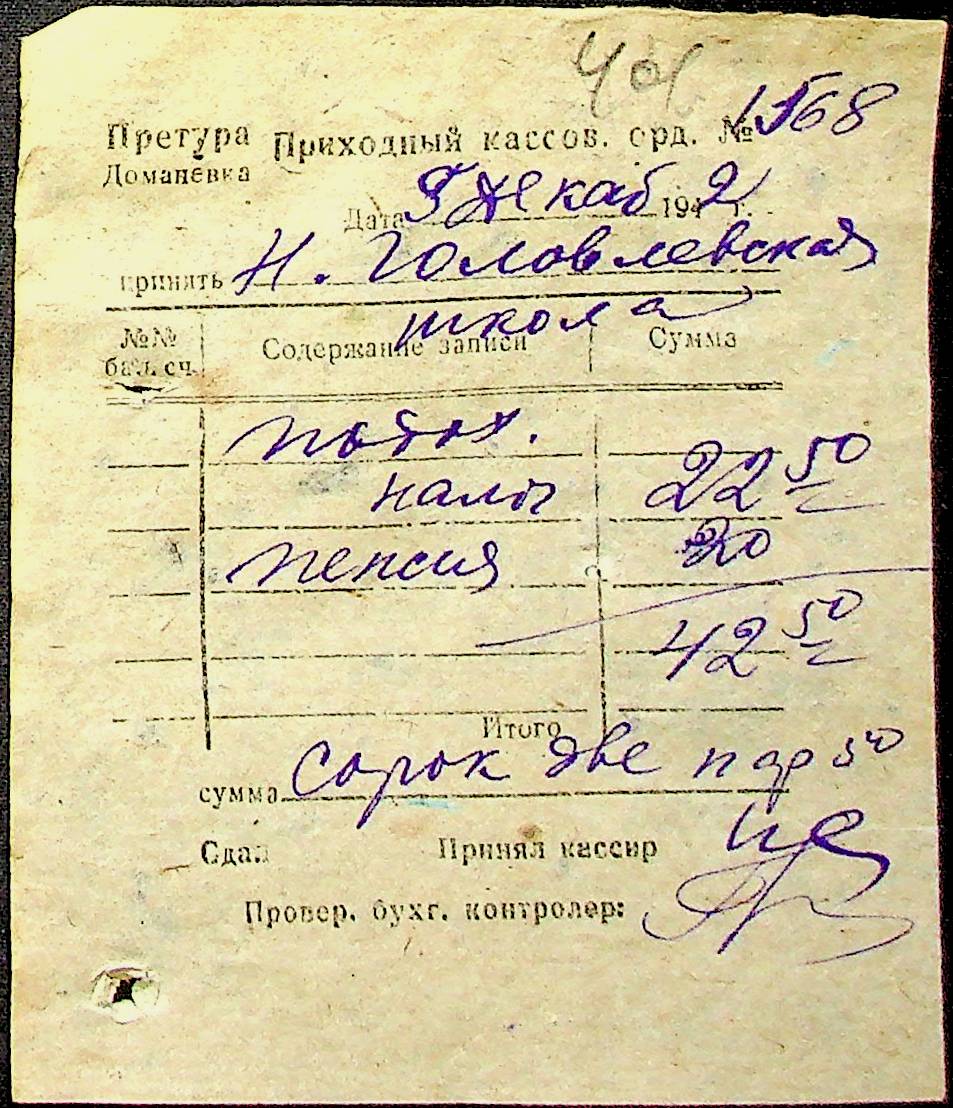 Претура Приходный кассов. орд. № 1568
Доманевка
Дата декаб 1942 г.
принять Н. Головлевская
школа
№№ бал. сч. Содержание записи Сумма
подох.
нало 22 50
пенсия 20
42 50
Итого
сумма Сорок две мар 50
Сдал Принял кассир
Провер. бухг. контролер: